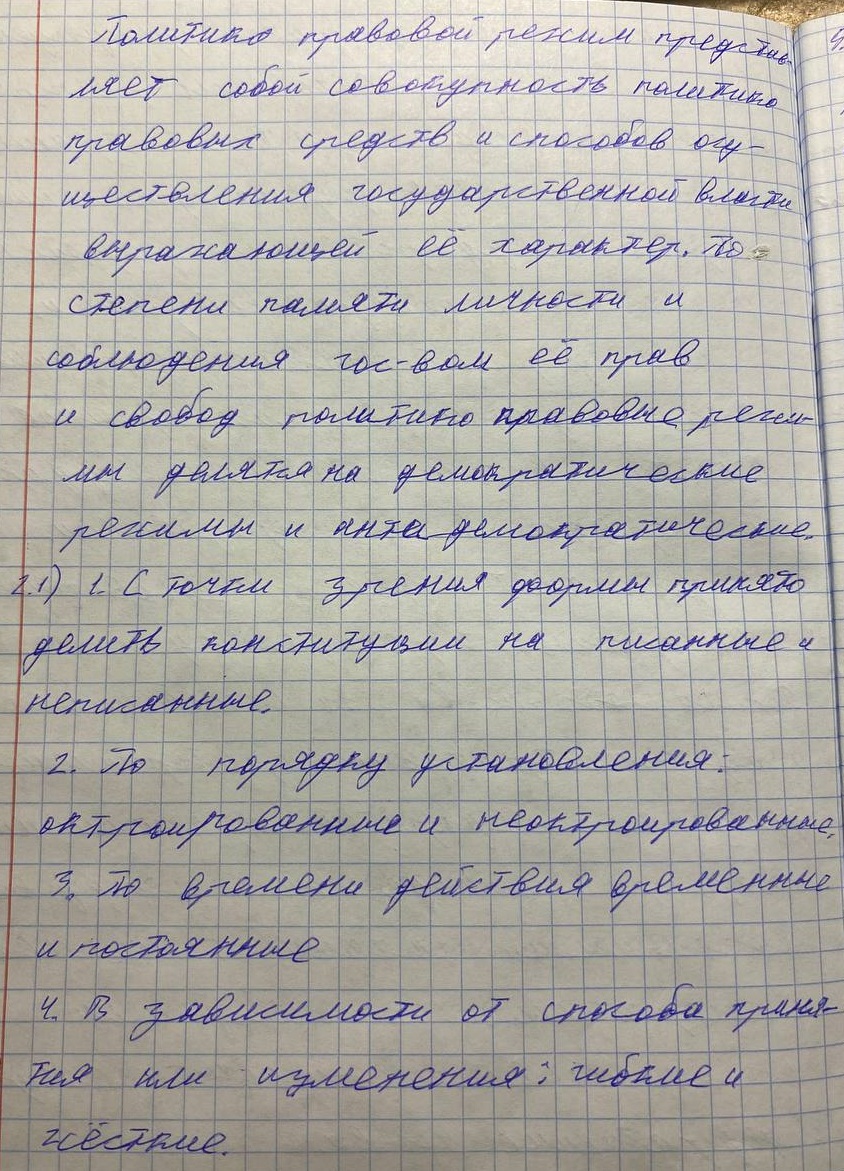 Политико правовой режим представ-
ляет собой совокупность политико
правовых средств и способов осу-
ществления государственной власти
выражающей её характер. По
степени памяти личности и
соблюдения гос-вом её прав
и свобод политико правовые режи-
мы делятся на демократические
режимы и анти демократические.
2.1) 1. С точки зрения формы принято
делить конституции на писанные и
неписанные.
2. По порядку установления:
октроированные и неоктроированные.
3. По времени действия временные
и постоянные
4. В зависимости от способа приня-
тия или изменения: гибкие и
жёсткие.